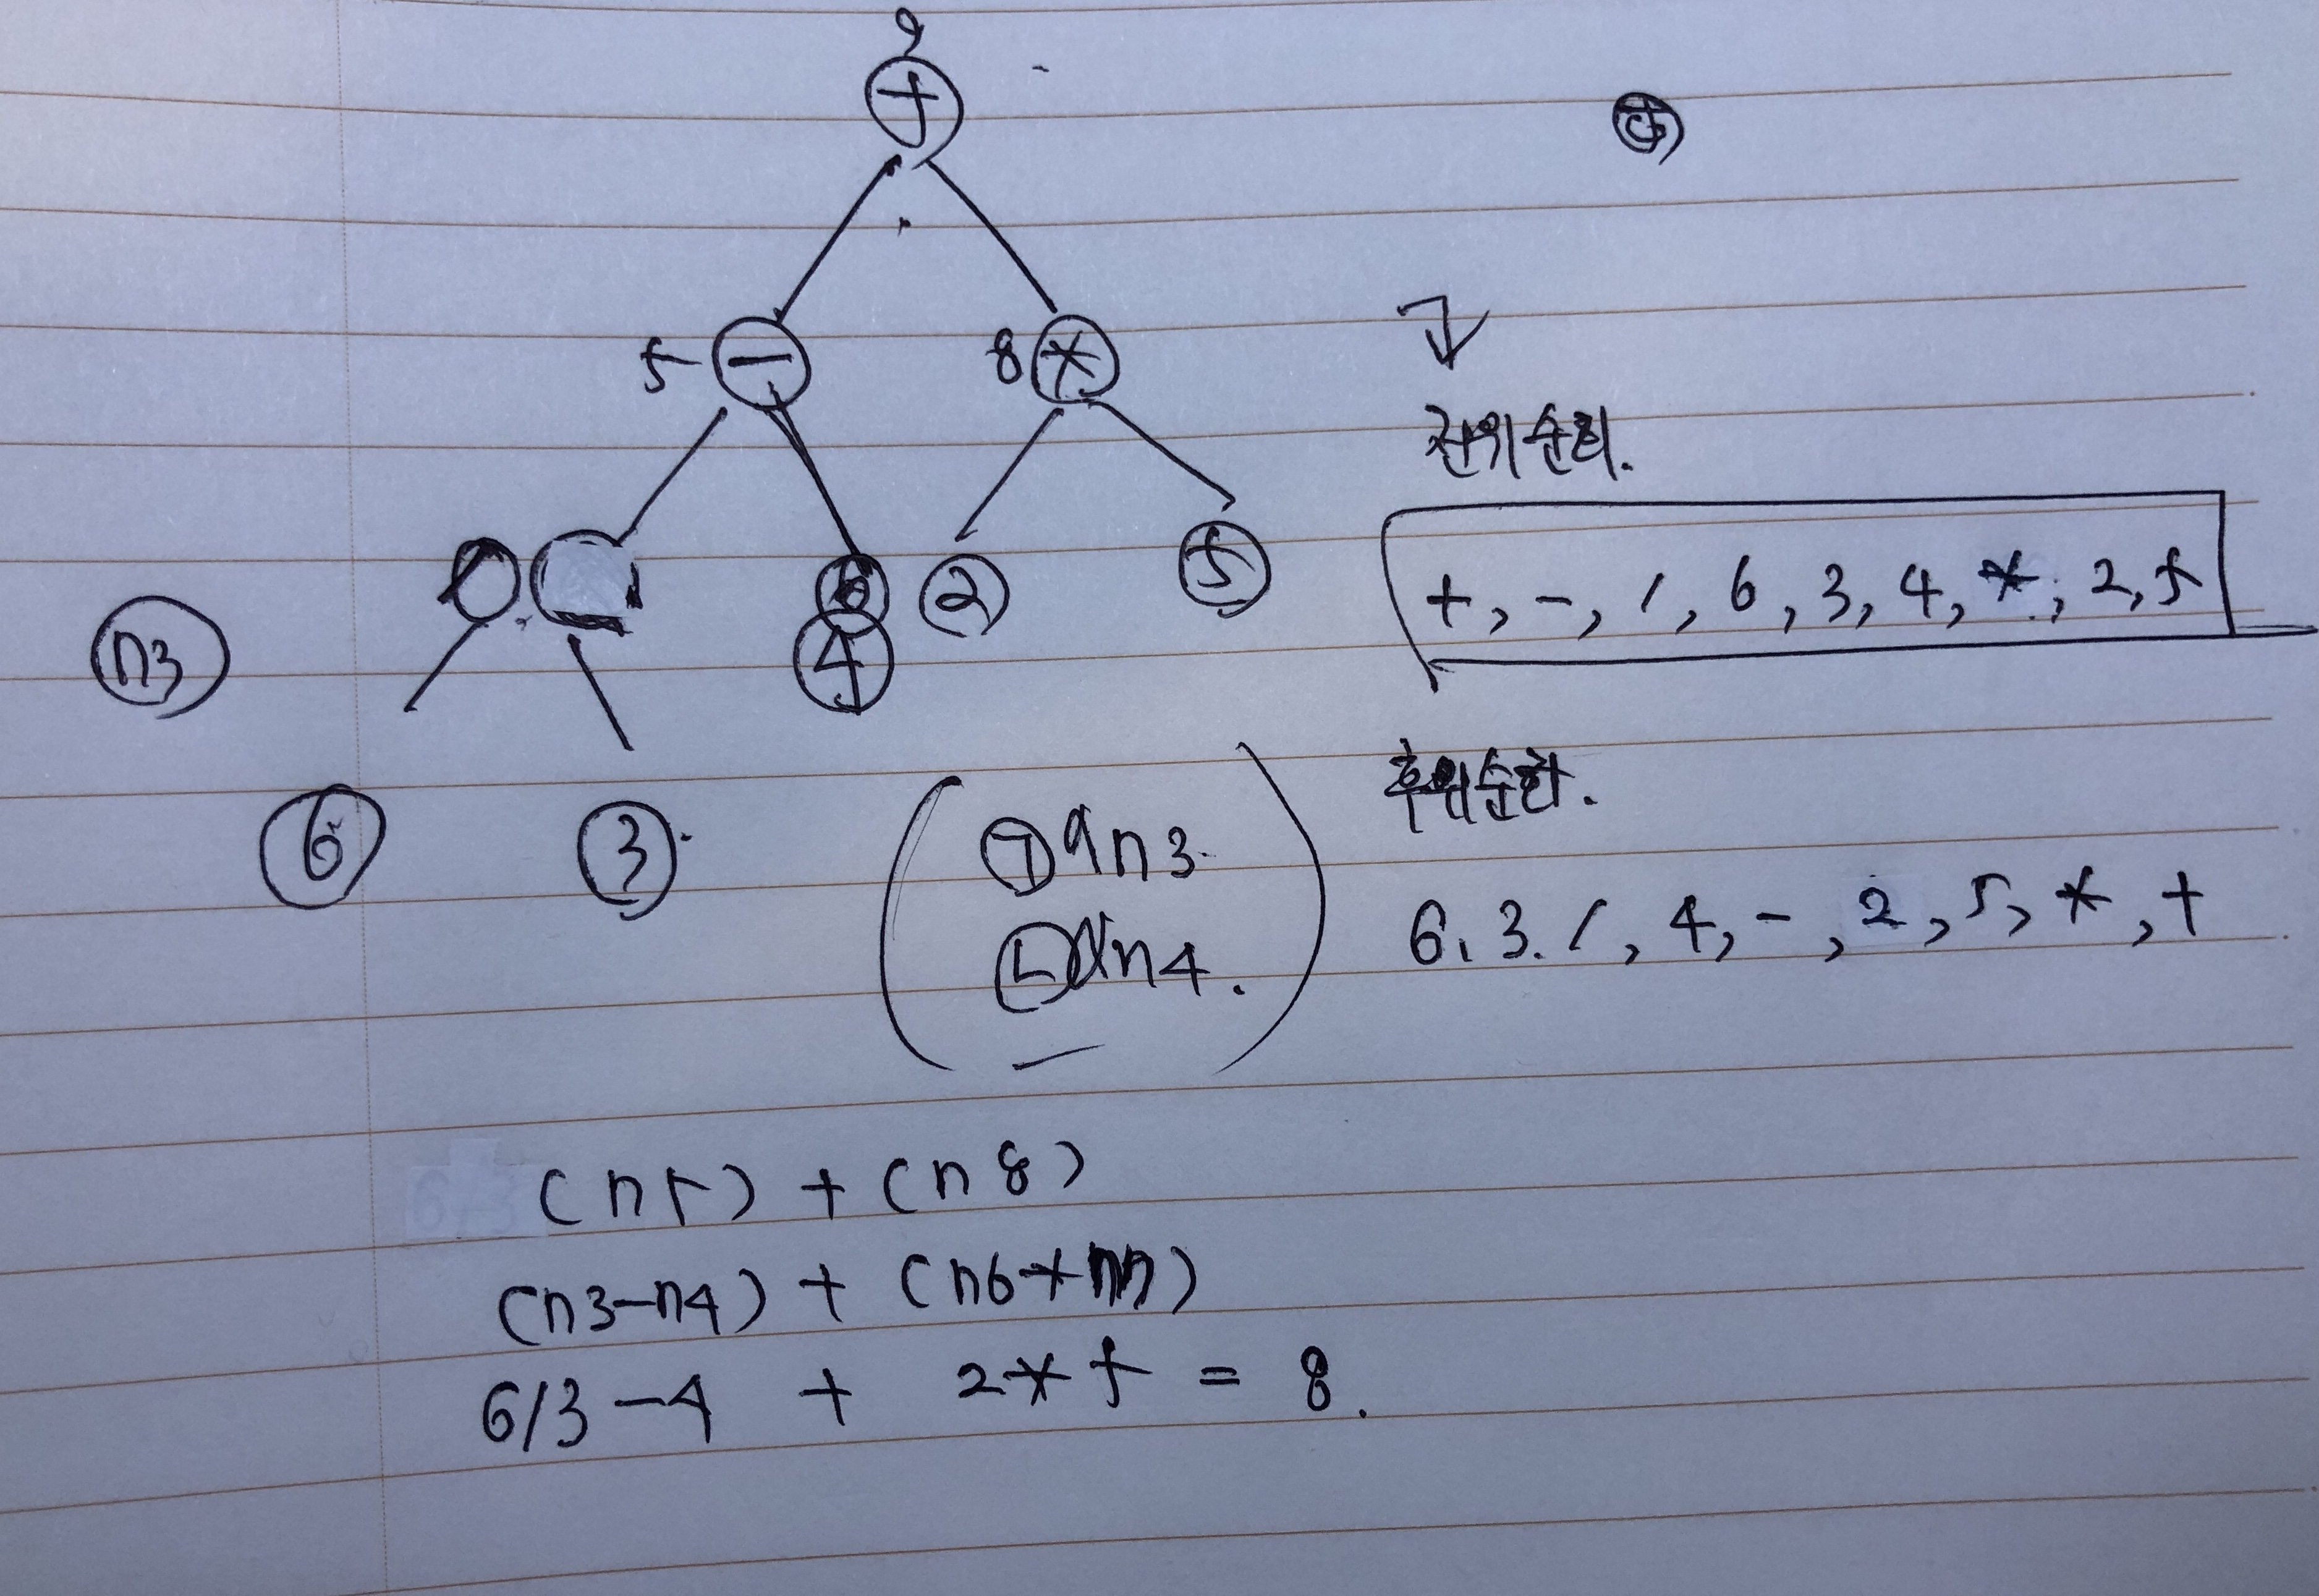 9
+
5 - 8 *
/ 6 2 5
n3 4
6 3
전위순회.
+, -, /, 6, 3, 4, *, 2, 5
㉠ n3.
㉡ n4.
후위순회.
6, 3. /, 4, -, 2, 5, *, +
(n5) + (n8)
(n3-n4) + (n6*n7)
6/3-4 + 2*5 = 8.